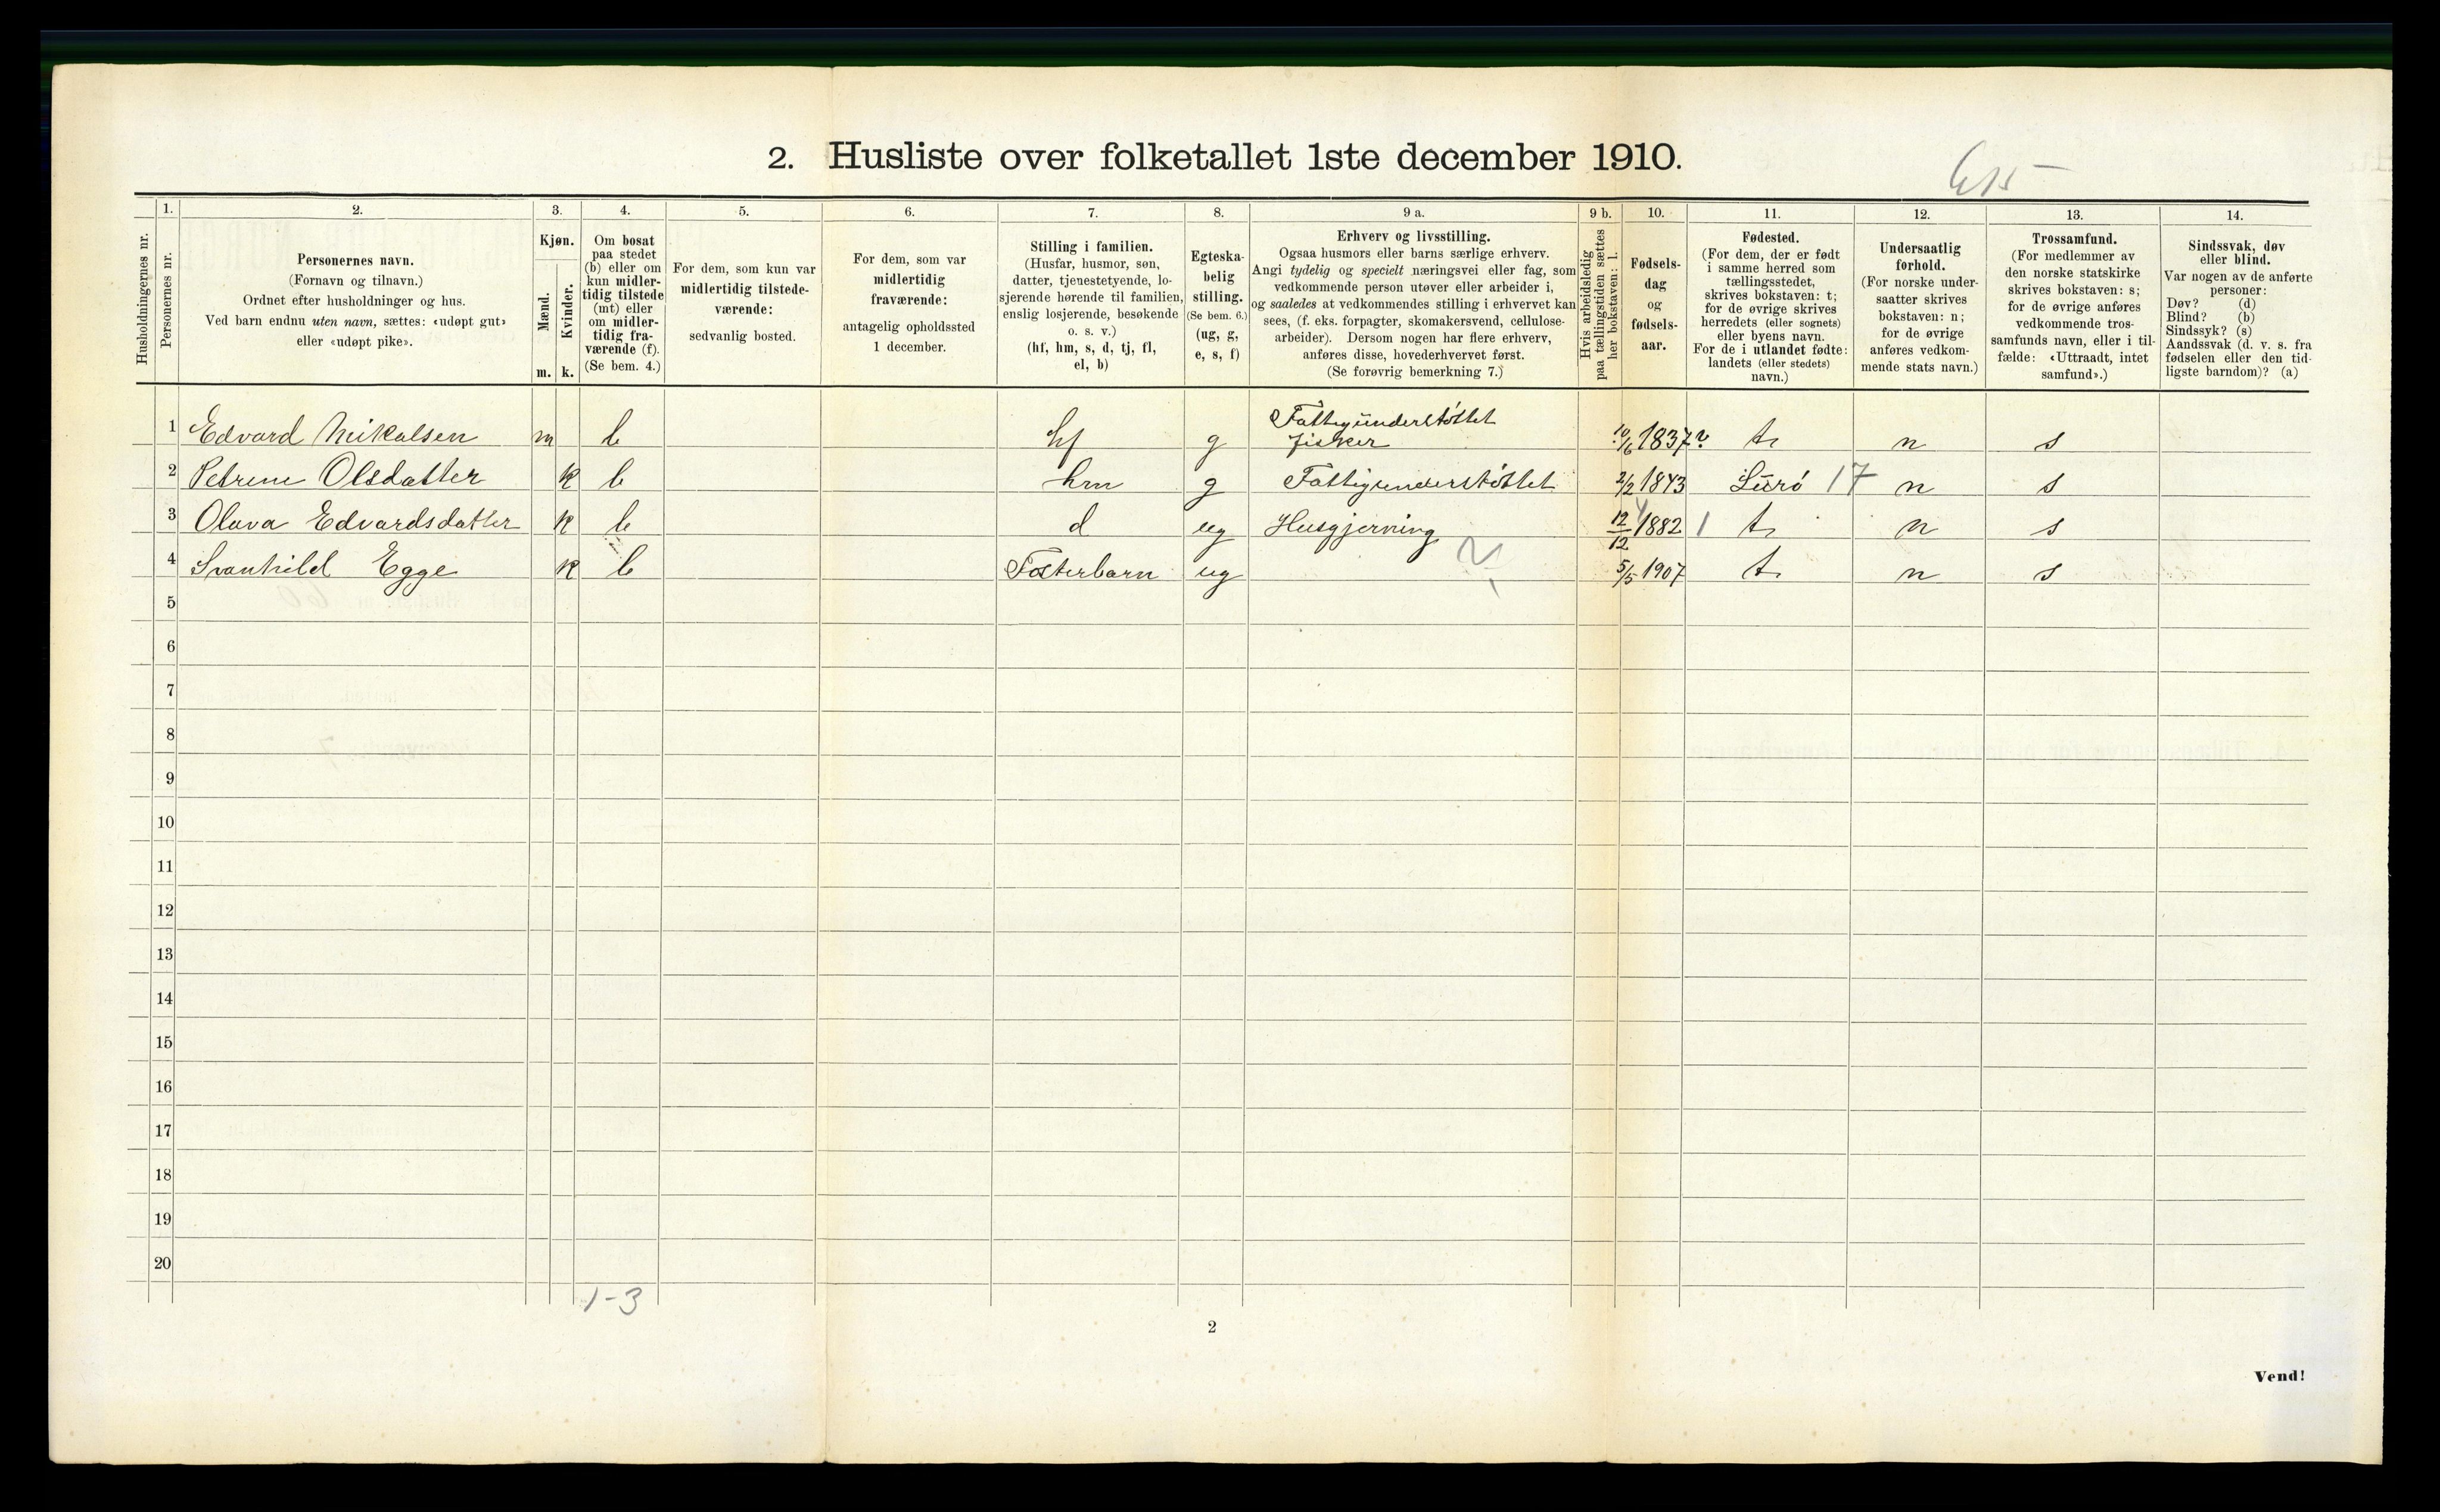 2. Husliste over folketallet 1ste december 1910.
Husholdningernes nr.
1.
Personernes nr.
2.
Personernes navn.
(Fornavn og tilnavn.)
Ordnet efter husholdninger og hus.
Ved barn endnu uten navn, sættes: «udøpt gut»
eller «udøpt pike».
3.
Kjøn.
Mænd.
Kvinder.
m. k.
4.
Om bosat
paa stedet
(b) eller om
kun midler-
tidig tilstede
(mt) eller
om midler-
tidig fra-
værende (f).
(Se bem. 4.)
5.
For dem, som kun var
midlertidig tilstede-
værende:
sedvanlig bosted.
6.
For dem, som var
midlertidig
fraværende:
antagelig opholdssted
1 december.
7.
Stilling i familien.
(Husfar, husmor, søn,
datter, tjenestetyende, lo-
sjerende hørende til familien,
enslig losjerende, besøkende
o. s. v.)
(hf, hm, s, d, tj, fl,
el, b)
8.
Egteska-
belig
stilling.
(Se bem. 6.)
(ug, g,
e, s, f)
9 a.
Erhverv og livsstilling.
Ogsaa husmors eller barns særlige erhverv.
Angi tydelig og specielt næringsvei eller fag, som
vedkommende person utøver eller arbeider i,
og saaledes at vedkommendes stilling i erhvervet kan
sees, (f. eks. forpagter, skomakersvend, cellulose-
arbeider). Dersom nogen har flere erhverv,
anføres disse, hovederhvervet først.
(Se forøvrig bemerkning 7.)
9 b.
Hvis arbeidsledig
paa tællingstiden sættes
her bokstaven: l.
10.
Fødsels-
dag
og
fødsels-
aar.
11.
Fødested.
(For dem, der er født
i samme herred som
tællingsstedet,
skrives bokstaven: t;
for de øvrige skrives
herredets (eller sognets)
eller byens navn.
For de i utlandet fødte:
landets (eller stedets)
navn.)
12.
Undersaatlig
forhold.
(For norske under-
saatter skrives
bokstaven: n;
for de øvrige
anføres vedkom-
mende stats navn.)
13.
Trossamfund.
(For medlemmer av
den norske statskirke
skrives bokstaven: s;
for de øvrige anføres
vedkommende tros-
samfunds navn, eller i til-
fælde: «Uttraadt, intet
samfund».)
14.
Sindssvak, døv
eller blind.
Var nogen av de anførte
personer:
Døv? (d)
Blind? (b)
Sindssyk? (s)
Aandssvak (d. v. s. fra
fødselen eller den tid-
ligste barndom)? (a)
1 Edvard Nikalsen m b hf g Fattigunderstöttet fisker 10/6 1837 ? t. n s
2 Petrine Olsdatter k b hm g Fattigunderstöttet 2/2 1843 Lurö 17 n s
3 Olava Edvardsdatter k b d ug Husgjerning 12/12 1882 1 t. n s
4 Svanhild Egge k b Fosterbarn ug 5/5 1907 t. n s
5
6
7
8
9
10
11
12
13
14
15
16
17
18
19
20
1-3
2
Vend!